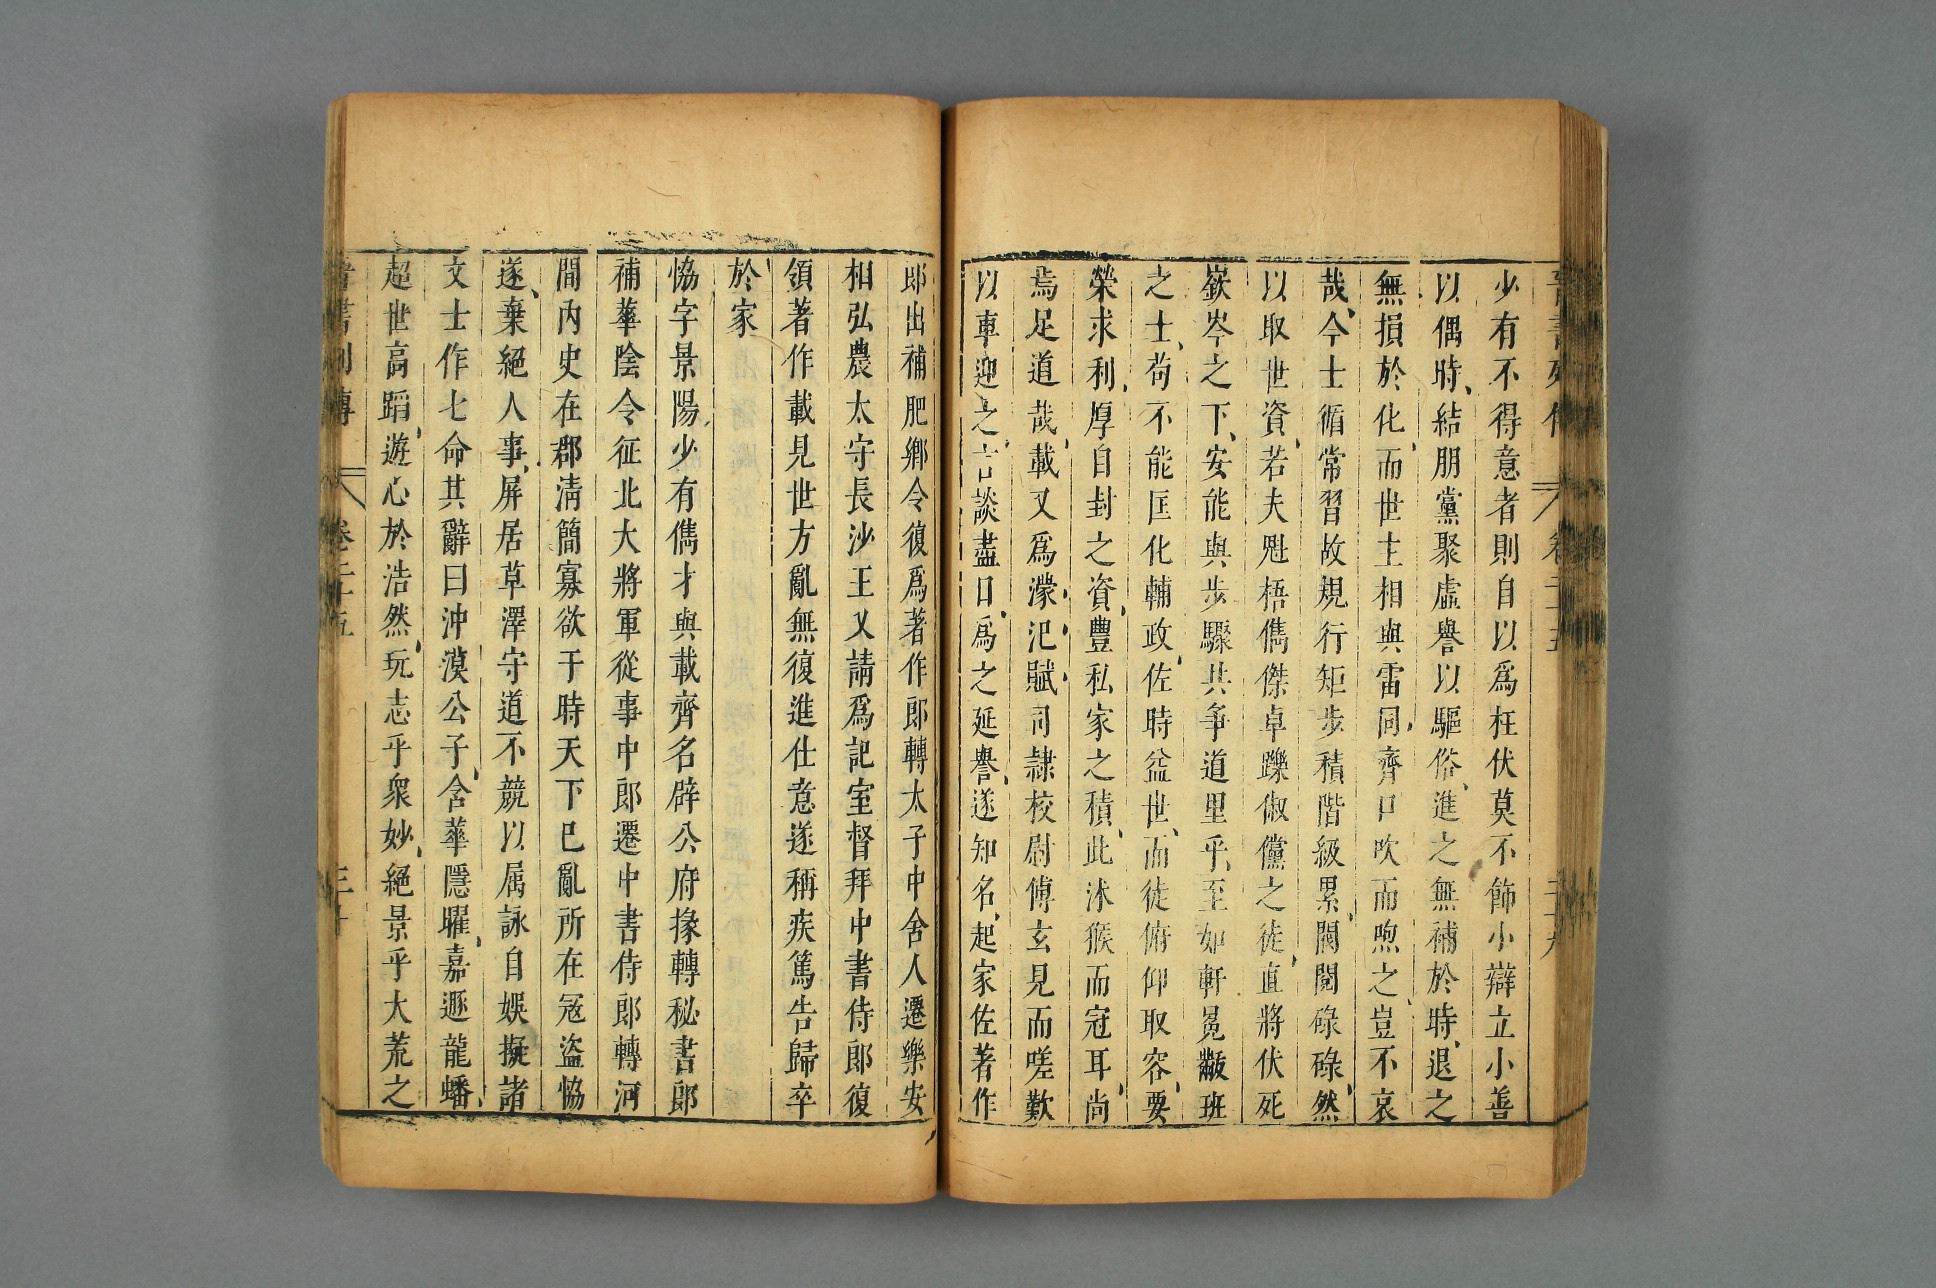 晉書列傳 卷二十五 二十九
少有不得意者則自以爲枉伏莫不飾小辯立小善
以偶時、結朋黨聚虛譽以驅俗、進之無補於時、退之
無損於化、而世主相與雷同、齊口吹而煦之、豈不哀
哉、今士循常習故規行矩步積階級累、閥閱碌碌、然
以取世資、若夫魁梧儁傑卓躒俶儻之徒、直將伏死
嶔岑之下、安能與步驟共爭道里乎、至如軒冕黻班
之士、苟不能匡化輔政、佐時益世、而徒俯仰取容、要
榮求利、厚自封之資、豐私家之積、此沐猴而冠耳、尚
焉足道哉、載又爲濛、汜、賦、司隷校尉傅玄見而嗟歎
以車迎之、言談盡日、爲之延譽、遂知名、起家佐著作
郎出補肥鄉令復爲著作郎轉太子中舍人遷樂安
相弘農太守長沙王乂請爲記室督拜中書侍郎復
領著作載見世方亂無復進仕意遂稱疾篤告歸卒
於家
協字景陽、少有儁才與載齊名辟公府掾轉秘書郎
補華陰令征北大將軍從事中郎遷中書侍郎轉河
間內史在郡淸簡寡欲于時天下已亂所在寇盜協
遂、棄絕人事、屏居草澤守道不競以屬詠自娛擬諸
文士作七命其辭曰沖漠公子、含華隱曜、嘉遯龍蟠、
超世高蹈、遊心於浩然、玩志乎衆妙、絕景乎大荒之
晉書列傳 卷二十五 三十